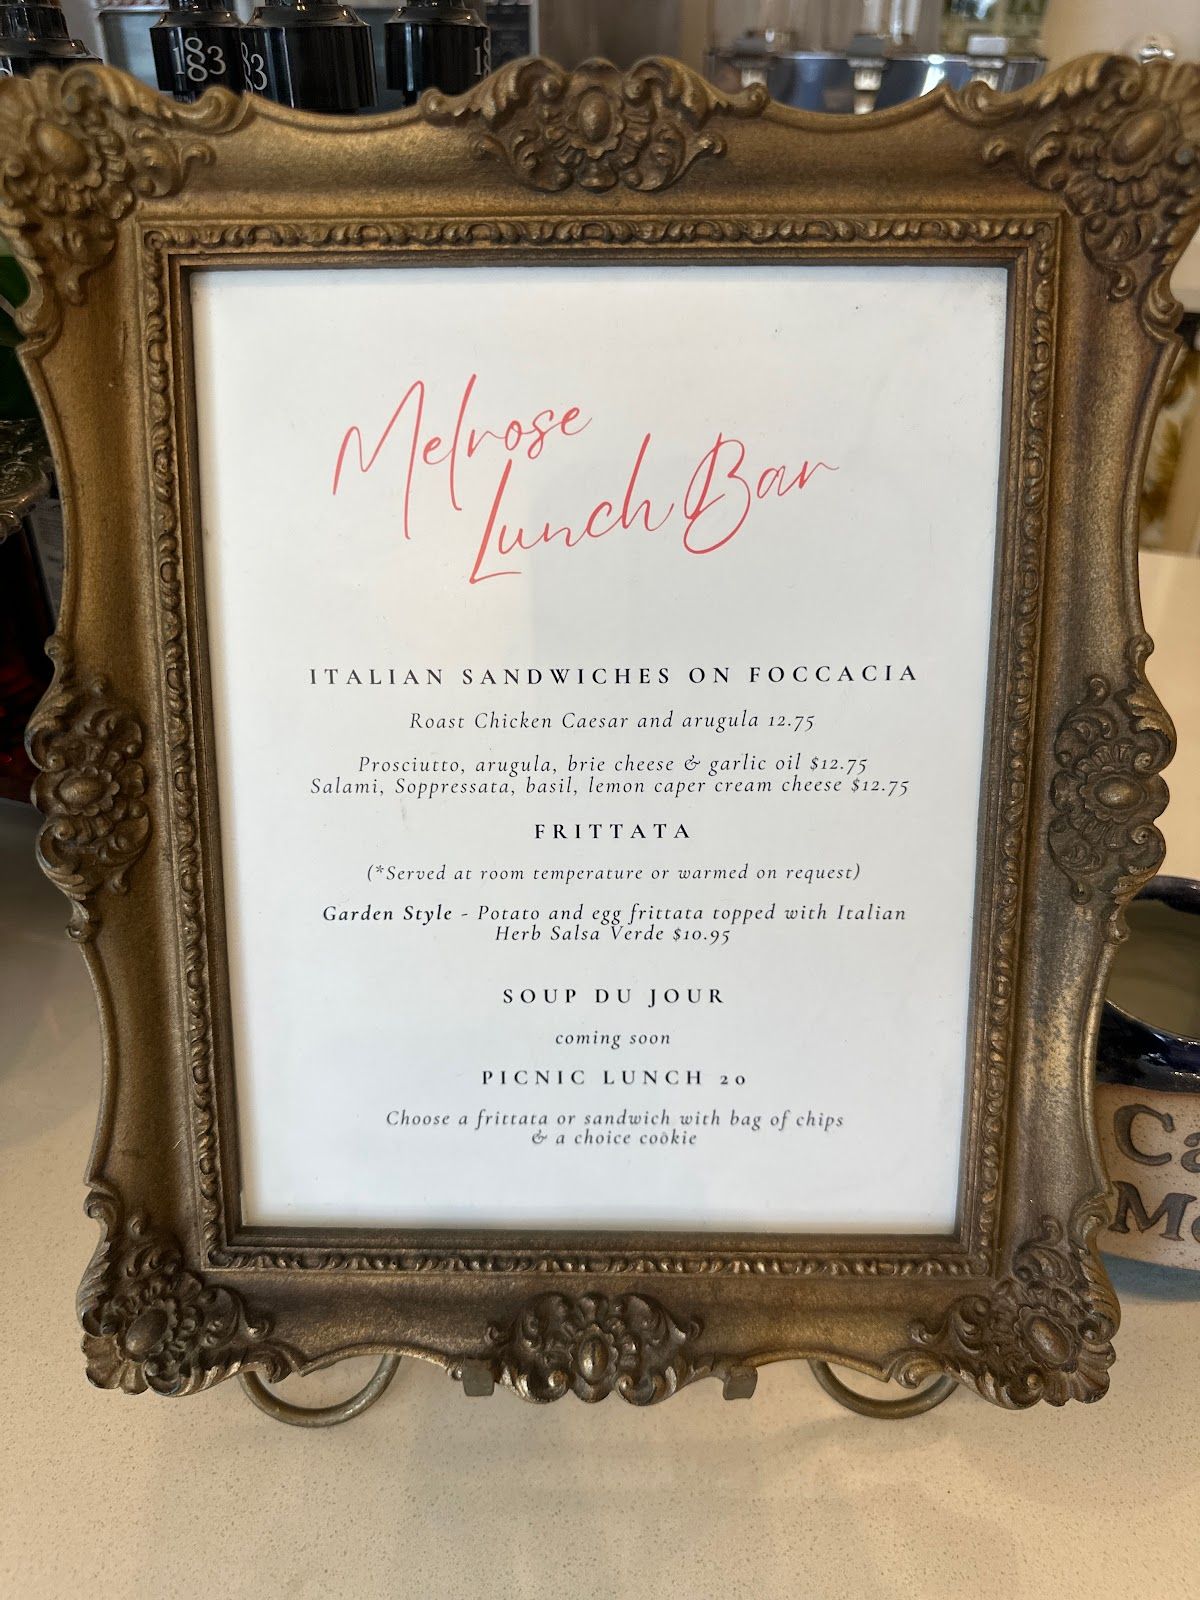 1883
83
183
Melrose
Lunch Bar
ITALIAN SANDWICHES ON FOCCACIA
Roast Chicken Caesar and arugula 12.75
Prosciutto, arugula, brie cheese & garlic oil $12.75
Salami, Soppressata, basil, lemon caper cream cheese $12.75
FRITTATA
(*Served at room temperature or warmed on request)
Garden Style - Potato and egg frittata topped with Italian
Herb Salsa Verde $10.95
SOUP DU JOUR
coming soon
PICNIC LUNCH 20
Choose a frittata or sandwich with bag of chips
& a choice cookie